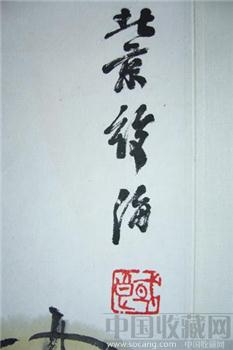 北京後海
中国收藏网
www.socang.com 中国收藏网